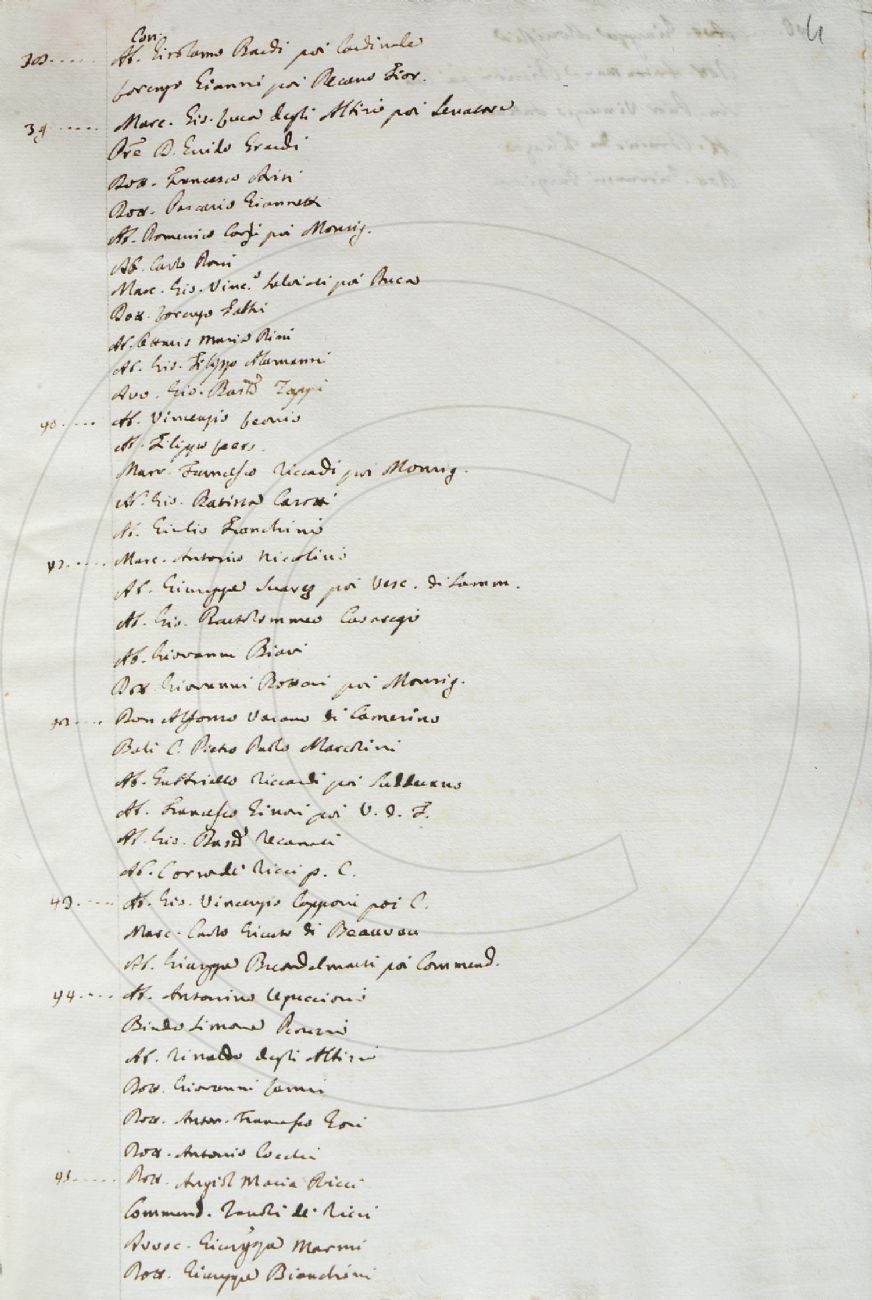 4
Con.
38...... Ab. Girolamo Bardi poi Cardinale
Lorenzo Gianni poi Decano Fior.
39...... Marc. Gio. Luca degli Albizi poi Senatore
Pre D. Guido Grandi
Dott. Francesco Bini
Dott. Pascasio Giannetti
Ab. Domenico Corsi poi Monsig.
Ab. Carlo Doni
Marc. Gio. Vinc.o Salviati poi Duca
Dott. Lorenzo Fabbri
Ab. Ottavio Maria Pini
Ab. Gio. Filippo Alamanni
Avv. Gio. Batta Zappi
40..... Ab. Vincenzio Leonio
Ab. Filippo Leers
Marc. Francesco Riccardi poi Monsig.
Ab. Gio. Batista Casotti
Ab. Giulio Franchini
Marc. Antonio Nicolini
Ab. Giuseppe Suarez poi Vesc. di Samm.
Ab. Gio. Bartolommeo Casaregi
Ab. Giovanni Biavi
Dott. Giovanni Bottari poi Monsig.
Don Alfonso Varano di Camerino
Bali C. Pietro Paolo Marcolini
Ab. Gabbriello Riccardi poi Suddecano
Ab. Francesco Ginori poi V. d. F.
Ab. Gio. Batta Recanati
Ab. Corrado Ricci p. C.
43..... Ab. Gio. Vincenzio Capponi poi C.
Marc. Carlo Giusto di Beauvau
Ab. Giuseppe Buondelmonti poi Commend.
44.... Ab. Antonino Uguccioni
Bindo Simone Peruzzi
Ab. Rinaldo degli Albizi
Dott. Giovanni Lami
Dott. Anton. Francesco Gori
Dott. Antonio Cocchi
45..... Dott. Angiol Maria Ricci
Commend. Zanobi de' Ricci
Avvoc. Giuseppe Marmi
Dott. Giuseppe Bianchini